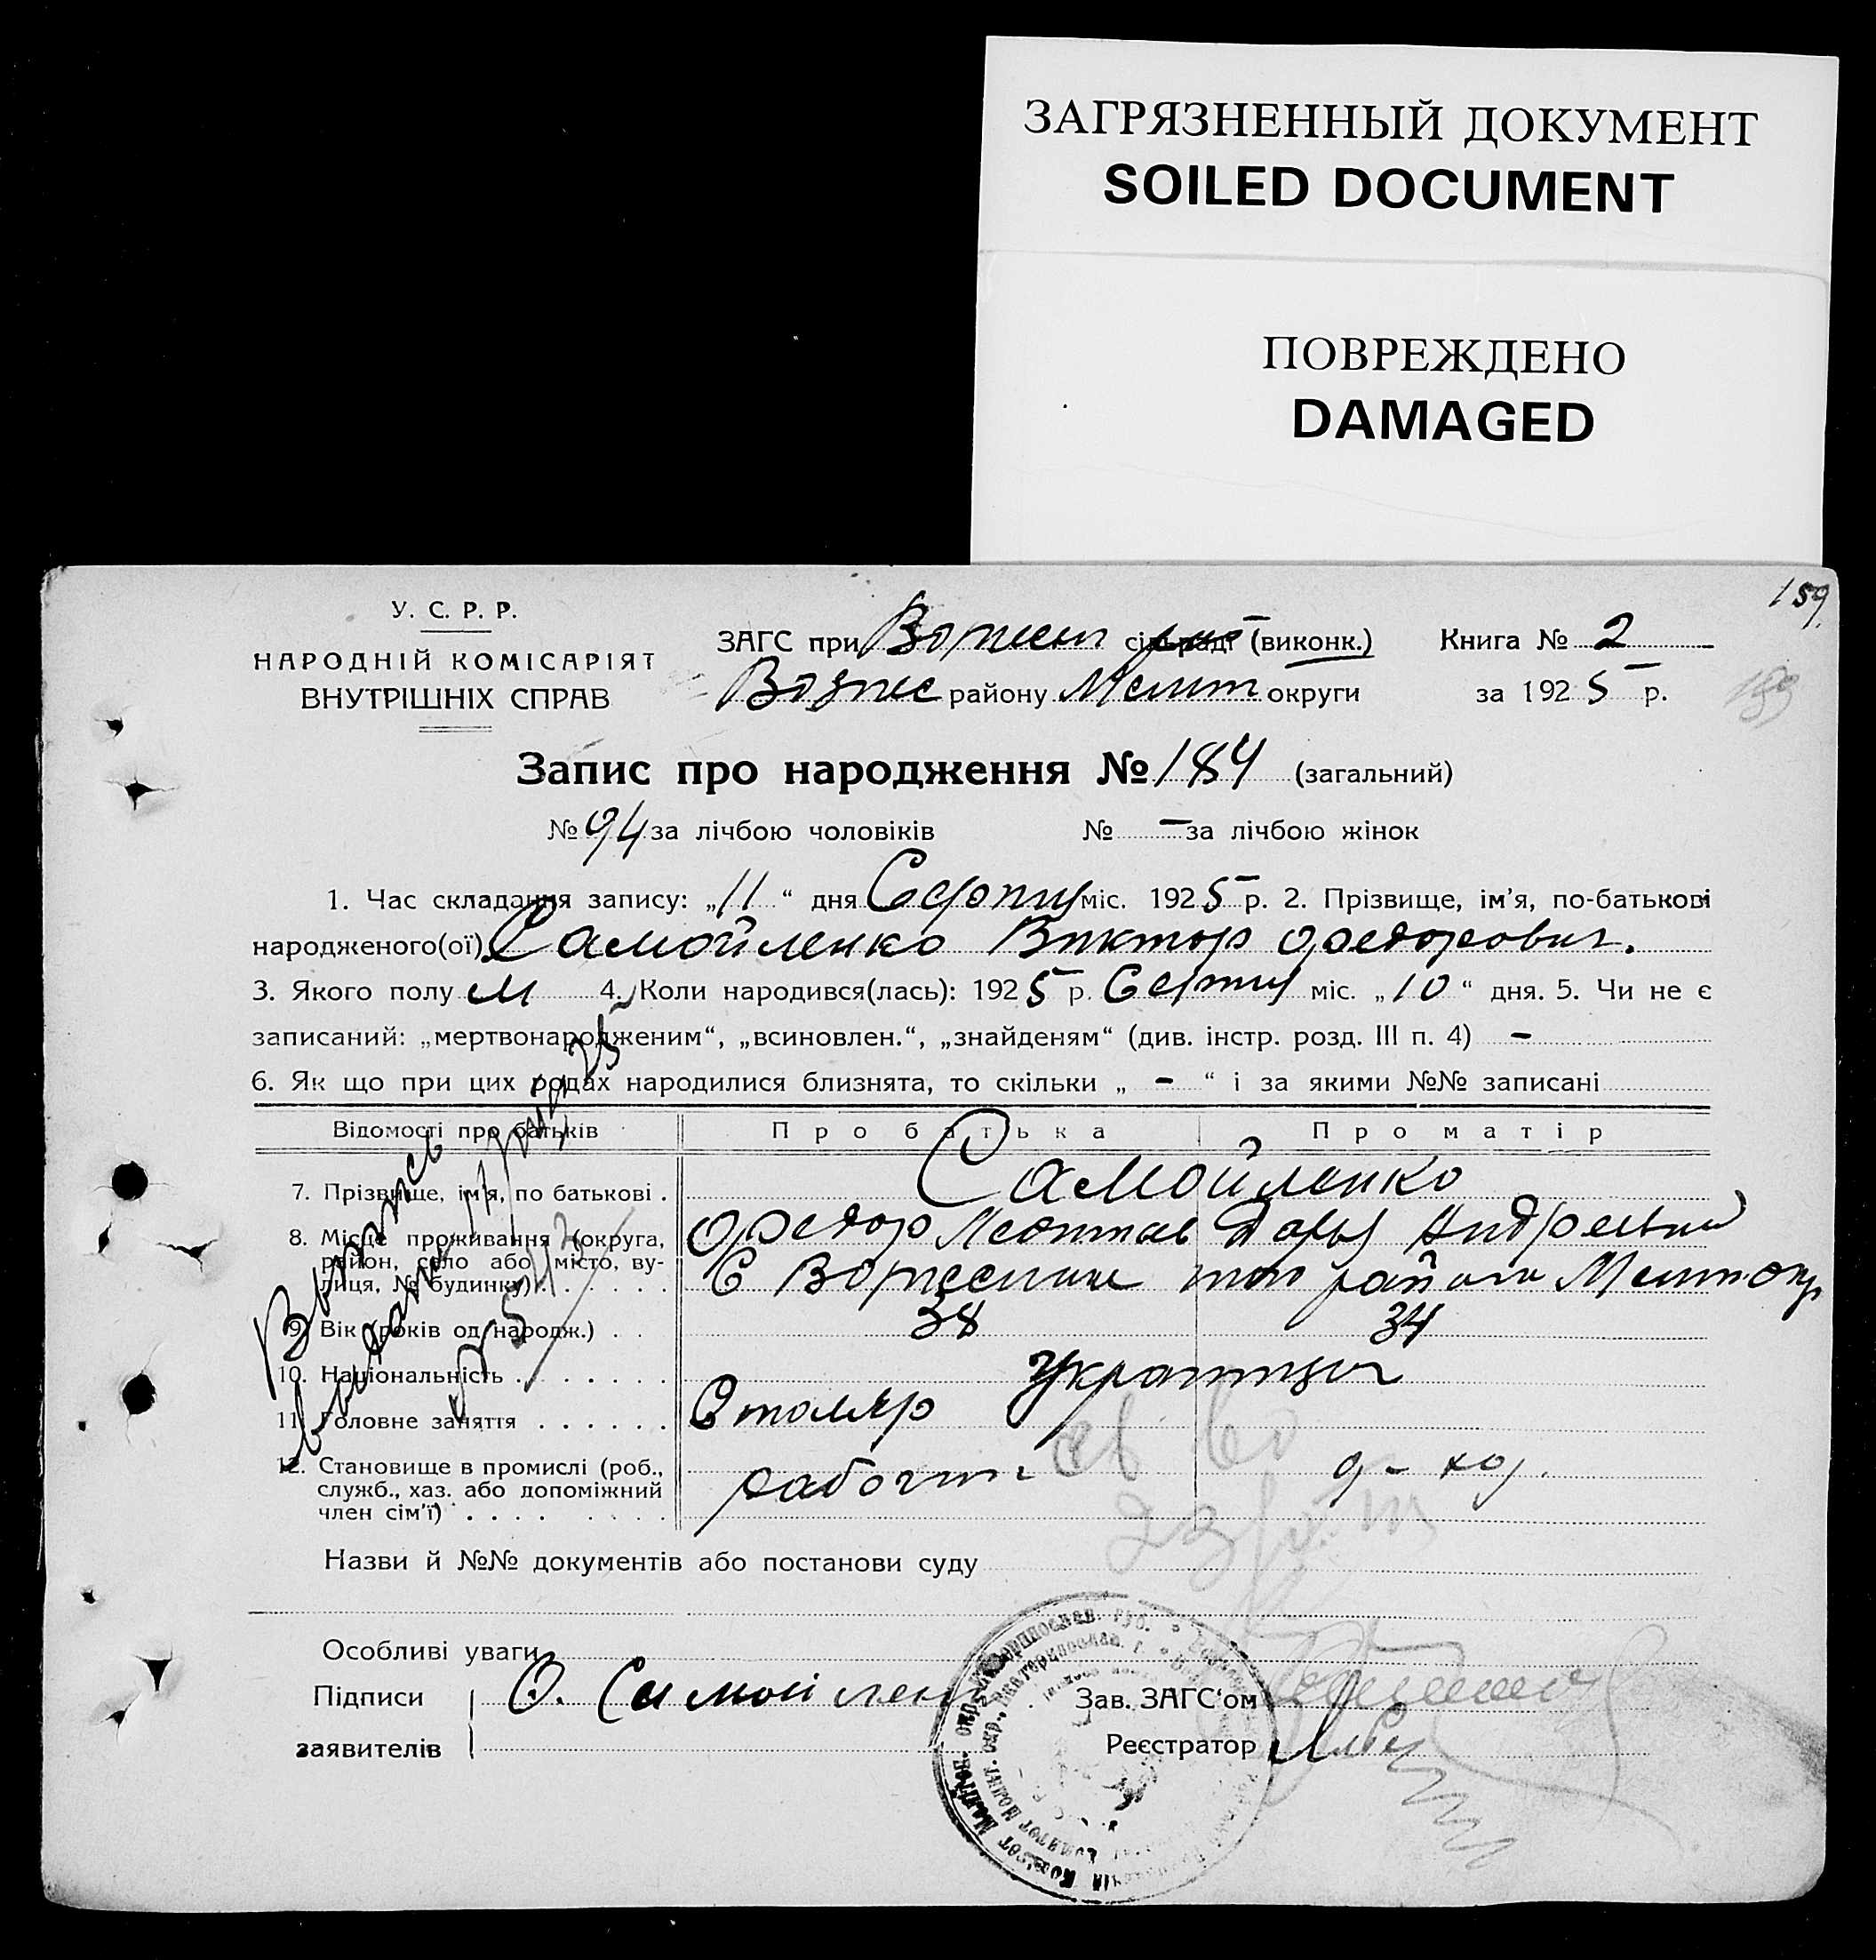 ЗАГРЯЗНЕННЫЙ ДОКУМЕНТ
SOILED DOCUMENT
ПОВРЕЖДЕНО
DAMAGED
159
У. С. Р. Р.
НАРОДНІЙ КОМІСАРІЯТ
ВНУТРІШНІХ СПРАВ
ЗАГС при сільраді (виконк.) Книга № 2
Вознес району Мелит округи за 1925 р.
Запис про народження № 184 (загальний)
№ 94 за лічбою чоловіків № — за лічбою жінок
1. Час складання запису: „11“ дня міс. 1925 р. 2. Прізвище, ім'я, по-батькові
народженого(ої) Самойленко Виктор Федорович.
3. Якого полу М 4. Коли народився(лась): 1925 р. міс. „10“ дня. 5. Чи не є
записаний: „мертвонародженим“, „всиновлен.“, „знайденям“ (див. інстр. розд. III п. 4) —
6. Як що при цих родах народилися близнята, то скільки „ — “ і за якими №№ записані
Відомості про батьків Про батька Про матір
7. Прізвище, ім'я, по батькові . Самойленко
8. Місце проживання (округа, Федор Дарья Андреевна
район, село або місто, ву-
лиця, № будинку) . . . . . . района
9. Вік (років од народж.) . . 38 34
10. Національність . . . . . . .
11. Головне заняття . . . . . . Столяр
12. Становище в промислі (роб.,
служб., хаз. або допоміжний
член сім'ї) . . . . . . . .
Назви й №№ документів або постанови суду
Особливі уваги
Підписи Зав. ЗАГС'ом
заявителів Реєстратор